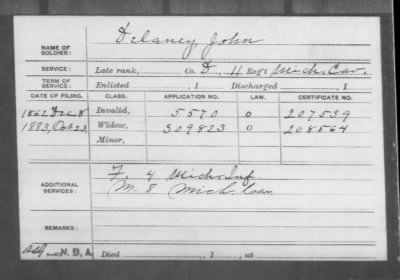 NAME OF SOLDIER: Delaney, John
SERVICE: Late rank, Co. D, 11 Reg't Mich. Cav.
TERM OF SERVICE: Enlisted , 1 Discharged , 1
DATE OF FILING. CLASS. APPLICATION NO. LAW. CERTIFICATE NO.
1862 Dec. 8 Invalid, 5570 0 207539
1883, Oct 23, Widow, 309823 0 208564
Minor,
ADDITIONAL SERVICES: F. 4 Mich. Inf.
M. 8 Mich. Cav.
REMARKS:
N. B. A. Died , 1 , at